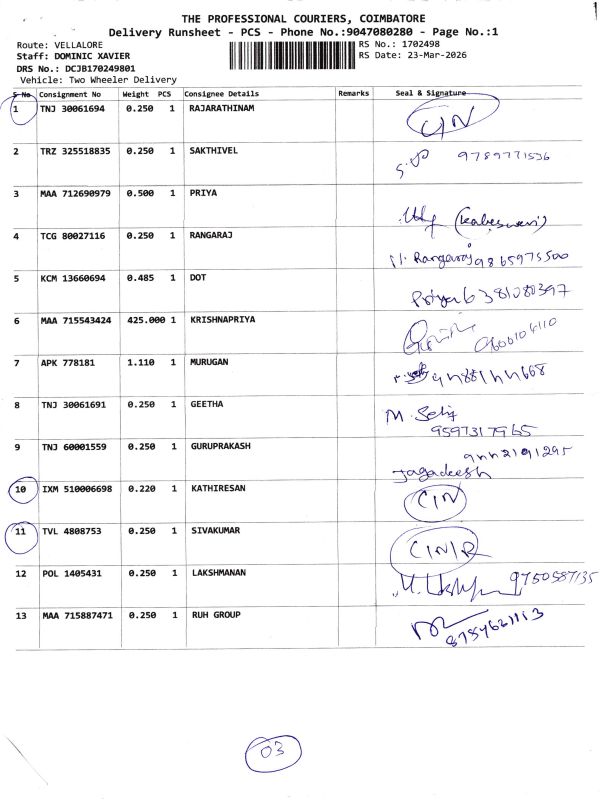 THE PROFESSIONAL COURIERS, COIMBATORE
Delivery Runsheet - PCS - Phone No.:9047080280 - Page No.:1
Route: VELLALORE RS No.: 1702498
Staff: DOMINIC XAVIER RS Date: 23-Mar-2026
DRS No.: DCJB170249801
Vehicle: Two Wheeler Delivery
S No Consignment No Weight PCS Consignee Details Remarks Seal & Signature
1 TNJ 30061694 0.250 1 RAJARATHINAM C/N
2 TRZ 325518835 0.250 1 SAKTHIVEL S.P 9789771536
3 MAA 712690979 0.500 1 PRIYA
4 TCG 80027116 0.250 1 RANGARAJ Rangaraj 9865975500
5 KCM 13660694 0.485 1 DOT Priya 6381080397
6 MAA 715543424 425.000 1 KRISHNAPRIYA
7 APK 778181 1.110 1 MURUGAN
8 TNJ 30061691 0.250 1 GEETHA M.
9597317965
9 TNJ 60001559 0.250 1 GURUPRAKASH
Jagadeesh
10 IXM 510006698 0.220 1 KATHIRESAN C/N
11 TVL 4808753 0.250 1 SIVAKUMAR C/N/R
12 POL 1405431 0.250 1 LAKSHMANAN 9750587135
13 MAA 715887471 0.250 1 RUH GROUP
03